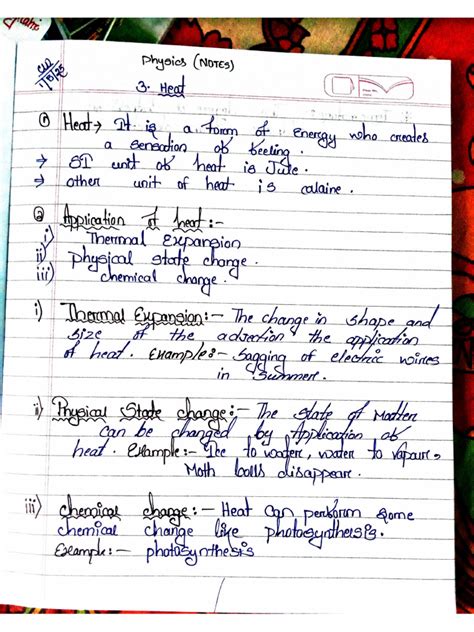 CW
1/5/25
Physics (NOTES)
3. Heat
① Heat → It is a form of Energy who creates
a sensation of feeling.
→ SI unit of heat is Jule.
→ other unit of heat is calaine.
② Application of heat:-
i) Thermal Expansion
ii) physical state change.
iii) chemical change.
i) Thermal Expansion:- The change in shape and
size of the adsection the application
of heat. Example:- Sagging of electric wires
in summer.
ii) Physical State change:- The state of Matter
can be changed by Application of
heat. Example:- Ice to water, water to vapour,
Moth balls disappear.
iii) chemical change:- Heat can perform some
chemical change like photosynthersis.
Example:- photosynthesis